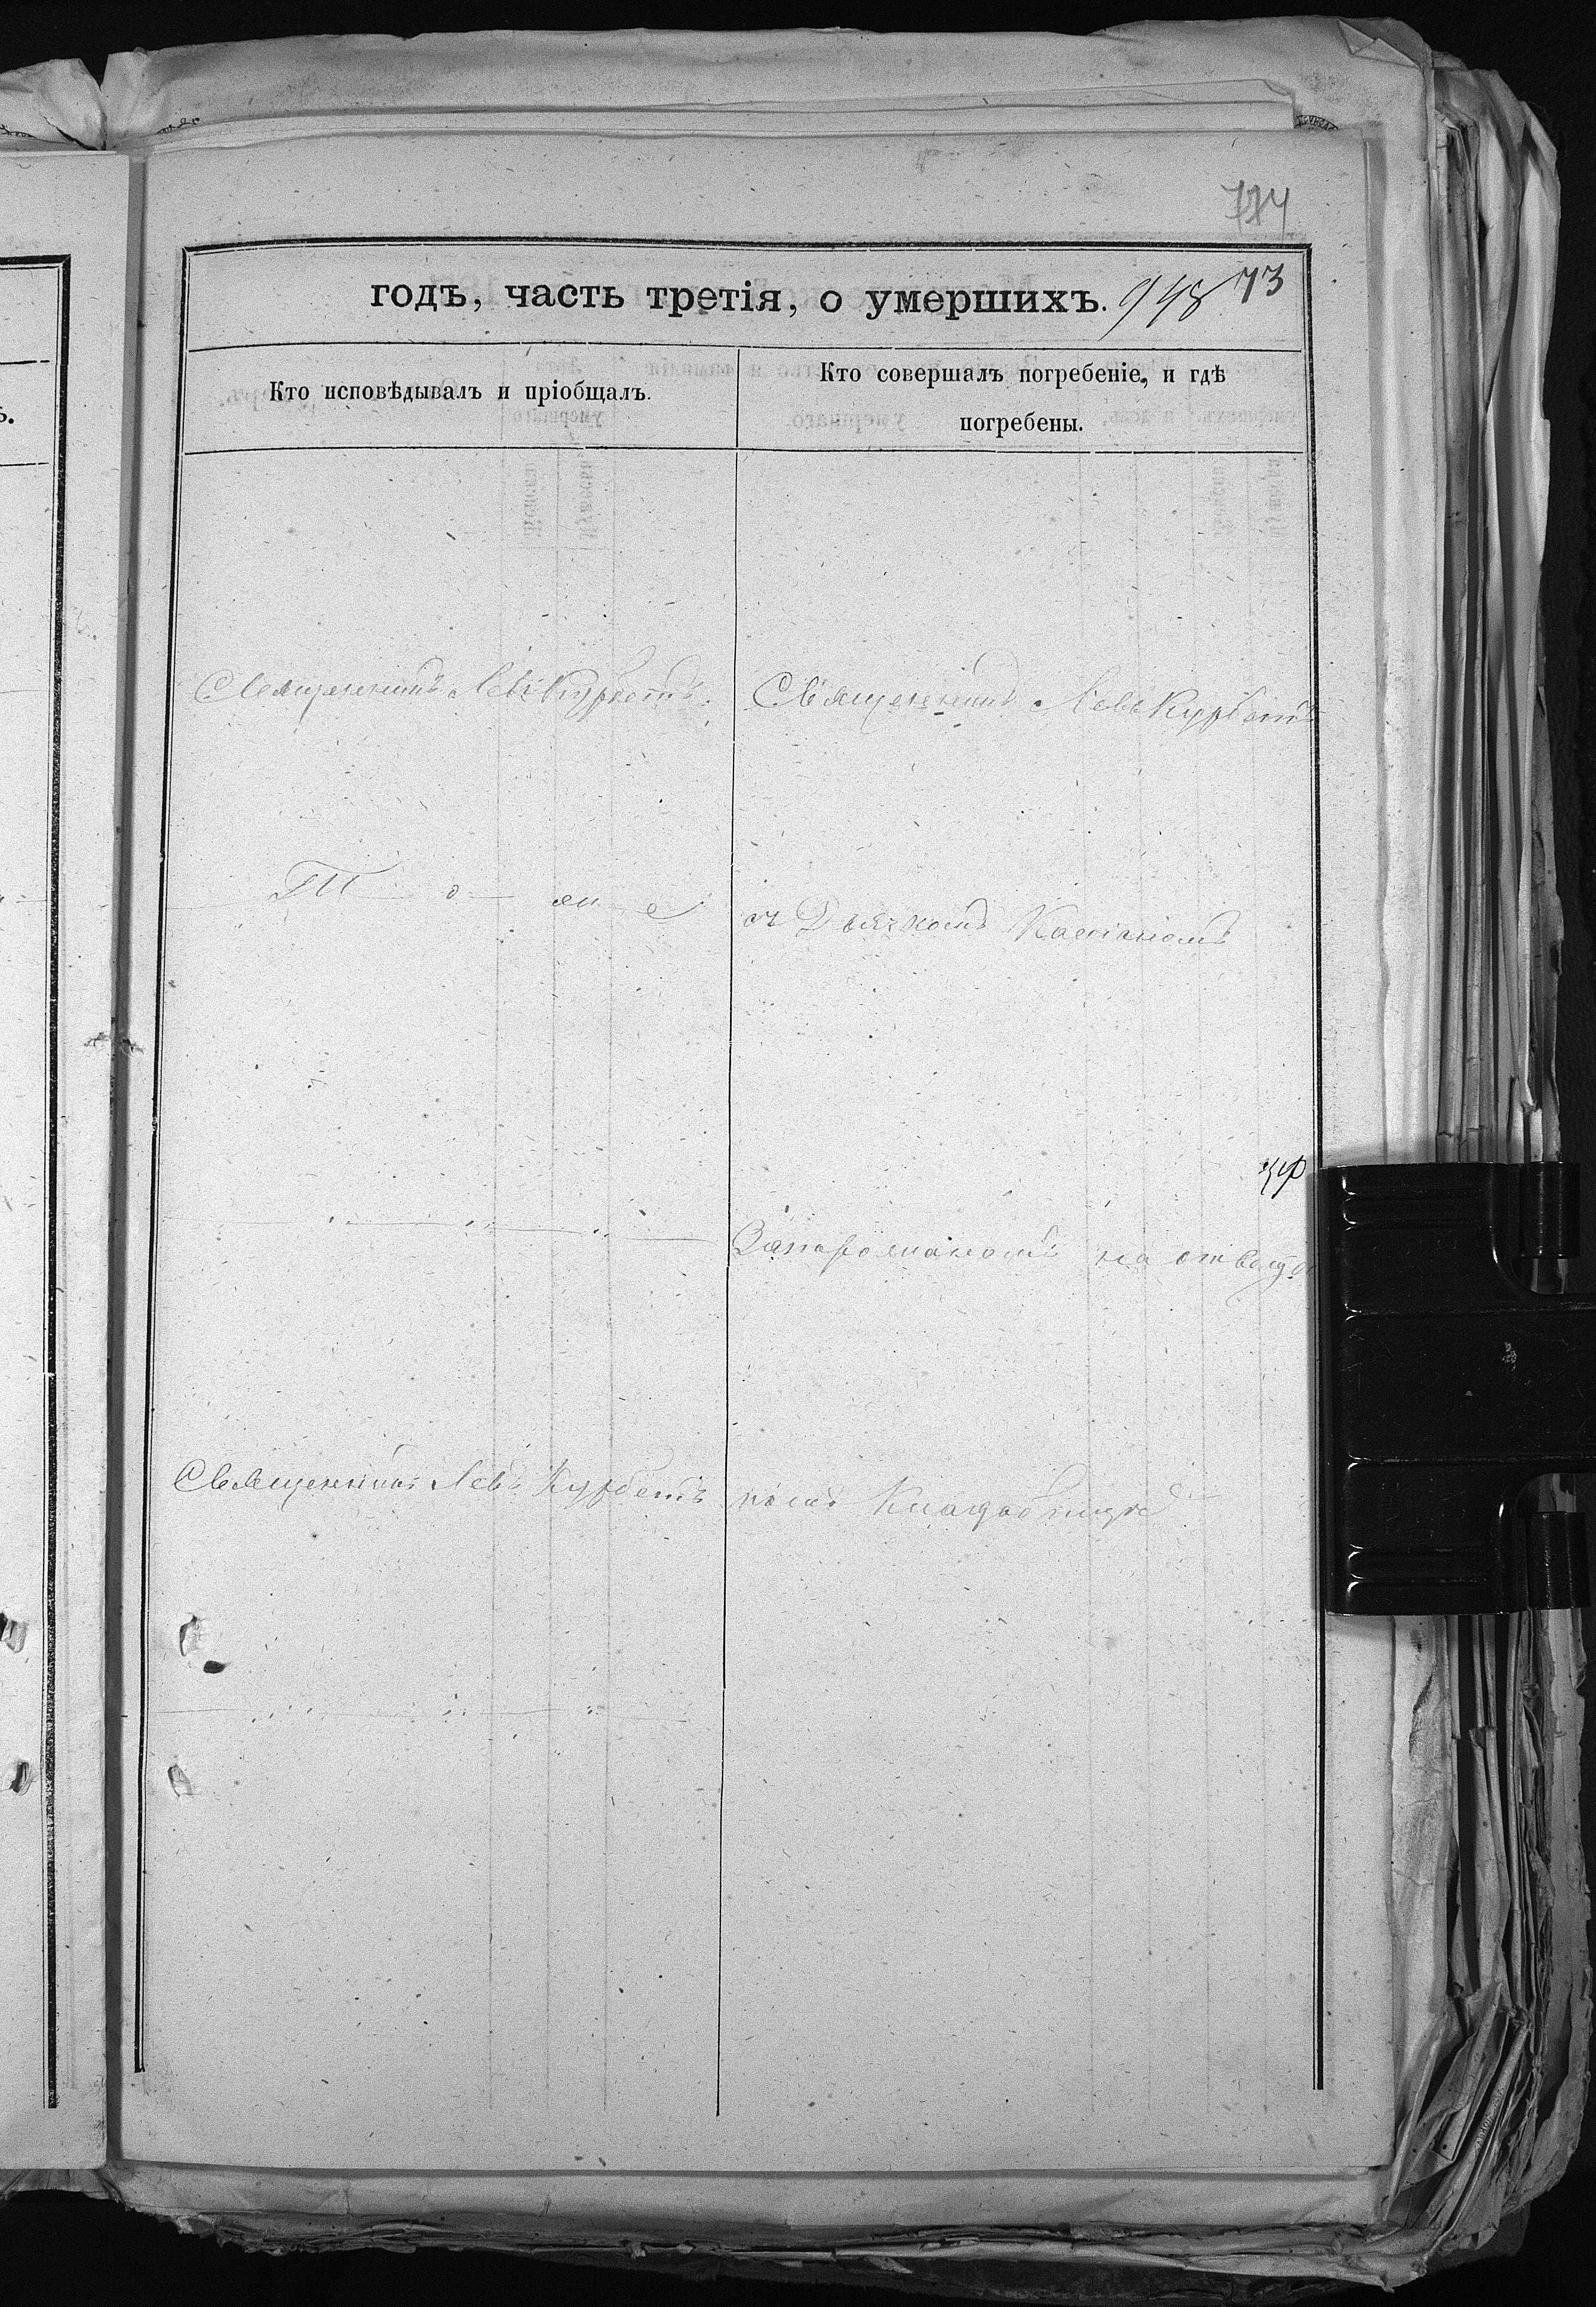 774
годъ, часть третія, о умершихъ. 948 73
Кто исповѣдывалъ и пріобщалъ.
Кто совершалъ погребеніе, и гдѣ
погребены.
Священникъ Левъ Курбетъ.
Священникъ Левъ Курбетъ
Т о ж е
съ Дьячкомъ
на отвед.
Священникъ Левъ Курбетъ
номъ Кладбищѣ